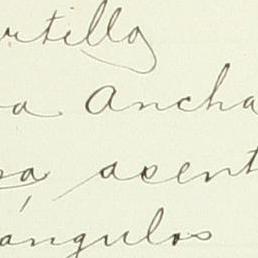 rtilla
a Ancha
na, asent
angulos